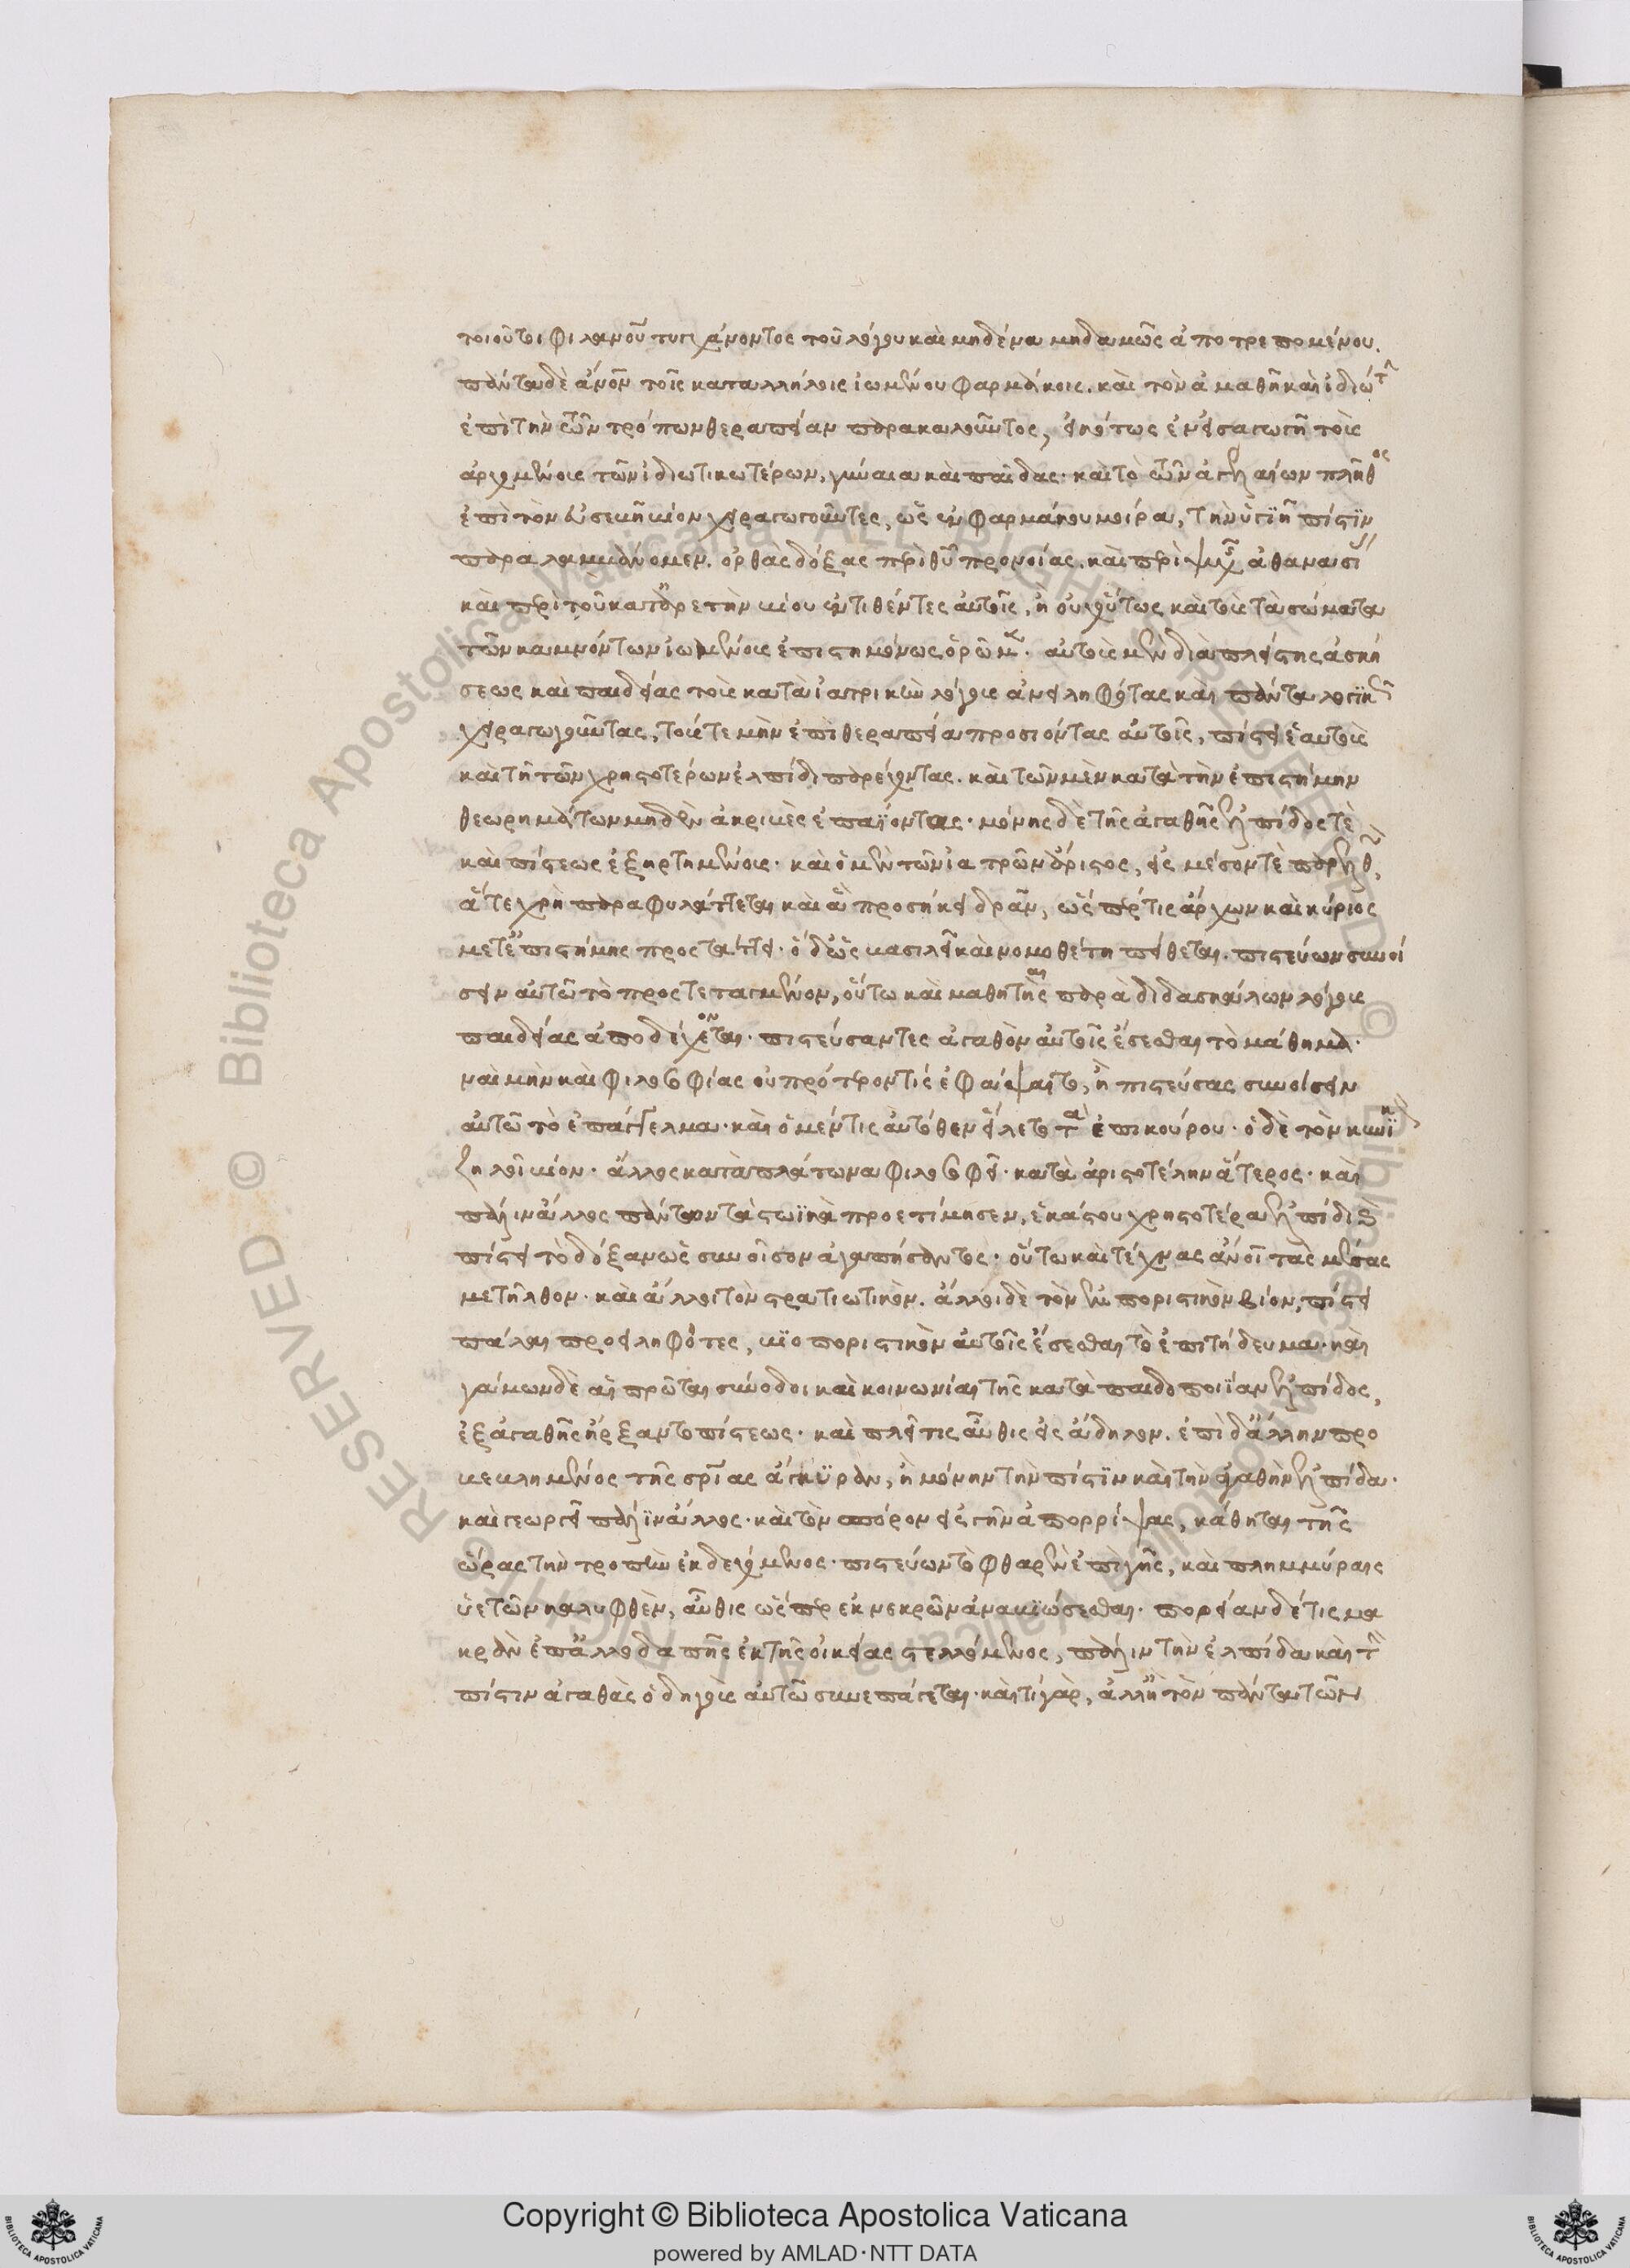 τοιούτου φιλανου τυγχάνοντος τοῦ λόγου καὶ μηδένα μηδαμῶς ἀποτρεπομένου.
πάντα δὲ ἄνον τοῖς καταλλήλοις ἰωμένου φαρμάκοις. καὶ τὸν ἀμαθῆ καὶ ἰδιώτ
ἐπὶ τὴν τῶν τρόπων θεραπείαν παρακαλοῦντος, εἰκότως ἐν εἰσαγωγῆ τοῖς
ἀρχομένοις τῶν ἰδιωτικωτέρων, γύναια καὶ παῖδας· καὶ τὸ τῶν ἀγελαίων πλῆθος
ἐπὶ τὸν εὐσεβῆ βίον χειραγωγοῦντες, ὡς ἐν φαρμάκου μοίρα, τὴν ὑγιῆ πίστιν
παραλαμβάνομεν. ὀρθὰς δόξας περὶ θυ προνοίας. καὶ περὶ ψυχ ἀθανασί
καὶ περὶ τοῦ κατ' ἀρετὴν βίου ἐντιθέντες αὐτοῖς, ἢ οὐχ οὕτως καὶ τοὺς τὰ σώματα
τῶν καμνόντων ἰωμένους ἐπιστημόνως ὁρῶμ. αὐτοὺς μὲν διὰ πλείστης ἀσκή
σεως καὶ παιδείας τοὺς κατὰ ἰατρικὴν λόγους ἀνειληφότας καὶ πάντα λογικ
χειραγωγοῦντας, τούς τε μὴν ἐπὶ θεραπεία προσιόντας αὐτοῖς, πίστει ἑαυτοὺς
καὶ τῆ τῶν χρηστοτέρων ἐλπίδι παρέχοντας. καὶ τῶν μὲν κατὰ τὴν ἐπιστήμην
θεωρημάτων μηδὲν ἀκριβὲς ἐπαΐοντας· μόνης δὲ τῆς ἀγαθῆς ἐλπίδος τὲ
καὶ πίστεως ἐξηρτημένους· καὶ ὁ μὲν τῶν ἰατρῶν ἄριστος, εἰς μέσον τὲ παρελθ,
ἅ τε χρὴ παραφυλάττεται καὶ ἃ προσήκει δρᾶν, ὥς περ τις ἄρχων καὶ κύριος
μετ' ἐπιστήμης προστάττει· ὁ δ' ὡς βασιλεῖ καὶ νομοθέτη πείθεται. πιστεύων συνοί
σειν αὐτῶ τὸ προστεταγμένον, οὕτω καὶ μαθηταὶ παρὰ διδασκάλων λόγους
παιδείας ἀποδέχονται. πιστεύσαντες ἀγαθὸν αὐτοῖς ἔσεσθαι τὸ μάθημα·
ναὶ μὴν καὶ φιλοσοφίας οὐ πρότερόν τις ἐφάψαιτο, ἢ πιστεύσας συνοίσειν
αὐτῶ τὸ ἐπάγγελμα· καὶ ὁ μέν τις αὐτόθεν εἵλετο τὰ ἐπικούρου· ὁ δὲ τὸν κυνι
ζηλοῖ βίον· ἄλλος κατὰ πλάτωνα φιλοσοφεῖ· κατὰ ἀριστοτέλην ἅτερος· καὶ
πάλιν ἄλλος πάντων τὰ στωϊκὰ προετίμησεν, ἑκάστου χρηστοτέρα ἐλπίδι καὶ
πίστει τὸ δόξαν ὡς συνοῖσον ἀγαπήσαντος· οὕτω καὶ τέχνας ἄνοι τὰς μέσας
μετῆλθον· καὶ ἄλλοι τὸν στρατιωτικόν. ἄλλοι δὲ τὸν ἐμποριστικὸν βίον, πίστει
πάλαι προειληφότες, βιοποριστικὸν αὐτοῖς ἔσεσθαι τὸ ἐπιτήδευμα· καὶ
γάμων δὲ αἱ πρῶται σύνοδοι καὶ κοινωνίαι τῆς κατὰ παιδοποιΐαν ἐλπίδος,
ἐξ ἀγαθῆς ἤρξαντο πίστεως· καὶ πλεῖ τις αὖθις εἰς ἄδηλον. ἐπὶ δ' ἄλλην προ
βεβλημένος τῆς σρίας ἄγκυραν, ἢ μόνην τὴν πίστιν καὶ τὴν ἀγαθὴν ἐλπίδα·
καὶ γεωργεῖ πάλιν ἄλλος· καὶ τὸν σπόρον εἰς γῆν ἀπορρίψας, κάθηται τῆς
ὥρας τὴν τροπὴν ἐκδεχόμενος· πιστεύων τὸ φθαρὲν ἐπὶ γῆς, καὶ πλημμύραις
ὑετῶν καλυφθὲν, αὖθις ὥς περ ἐκ νεκρῶν ἀναβιώσεσθαι· πορείαν δέ τις μα
κρὰν ἐπ' ἀλλοδαπῆς ἐκ τῆς οἰκείας στελλόμενος, πάλιν τὴν ἐλπίδα καὶ τ
πίστιν ἀγαθὰς ὁδηγοὺς αὐτῶ συνεπάγεται· καὶ τί γὰρ, ἀλλ' ἢ τὸν πάντα τῶν